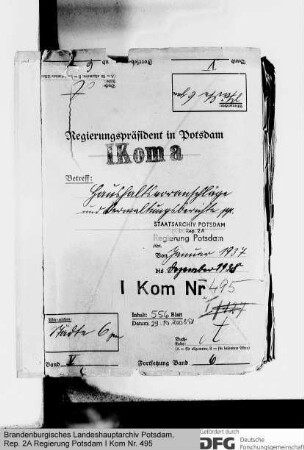 Regierungspräsident in Potsdam
I Kom a
Betreff:
Haushaltsvoranschläge
und Verwaltungsberichte pp.
STAATSARCHIV POTSDAM
Rep. 2A
Regierung Potsdam
Von Januar 1937
bis Dezember 1938
I Kom Nr 495
Inhalt: 556 Blatt
Datum:
Städte 6
Band V
Fortsetzung Band 6
Brandenburgisches Landeshauptarchiv Potsdam,
Rep. 2A Regierung Potsdam I Kom Nr. 495
Gefördert durch
DFG Deutsche
Forschungsgemeinschaft